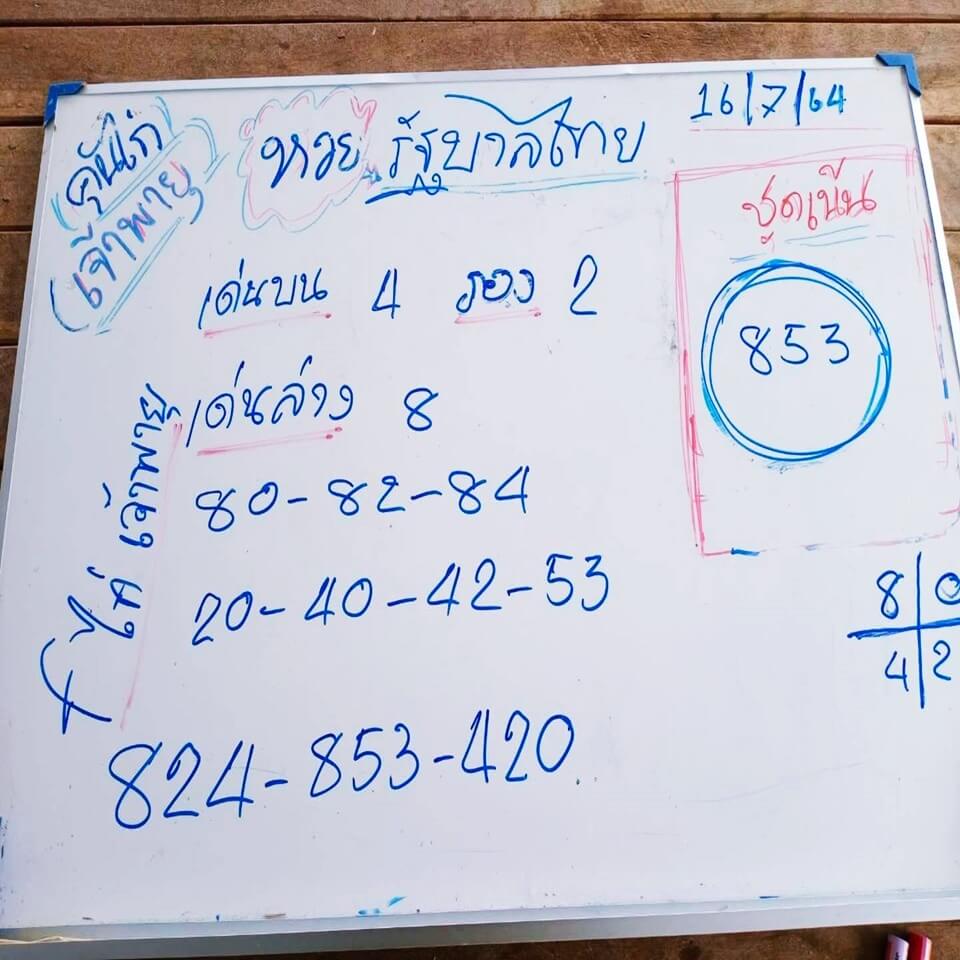 16/7/64
หวย รัฐบาลไทย
เจ้าพายุ
ชุดเน้น
853
เด่นบน 4 รอง 2
เด่นล่าง 8
80-82-84
20-40-42-53
824-853-420
ไก่ เจ้าพายุ
8 0
4 2